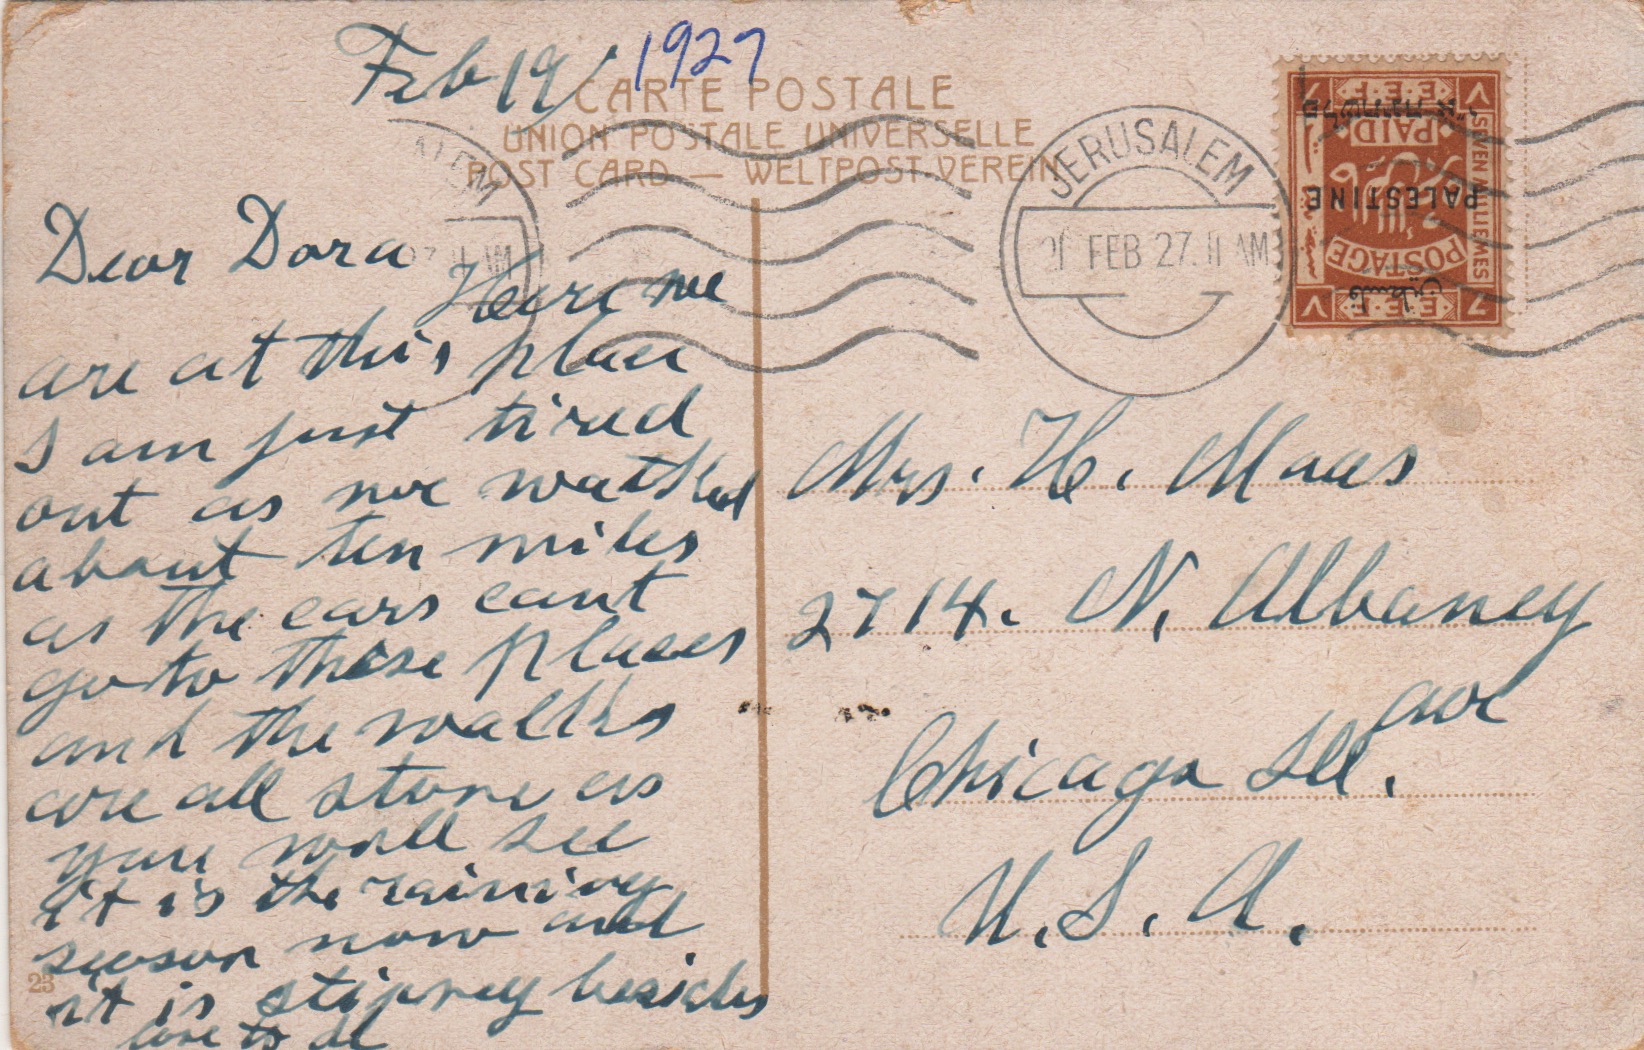 Feb 19/ 1927
CARTE POSTALE
UNION POSTALE UNIVERSELLE
POST CARD — WELTPOST-VEREIN
JERUSALEM
FEB 27. 11 AM
PALESTINE
POSTAGE
PAID
E.E.F.
SEVEN MILLIEMES
7
فلسطين
Dear Dora
Here we
are at this place
I am just tired
out as we walked
about ten miles
as the cars cant
go to these places
and the walks
are all stone as
you will see
it is the rainivg
season now and
it is besides
love to al
23
Mrs. H. Maas
2714. N. Albaney
ave
Chicago Ill.
U.S.A.